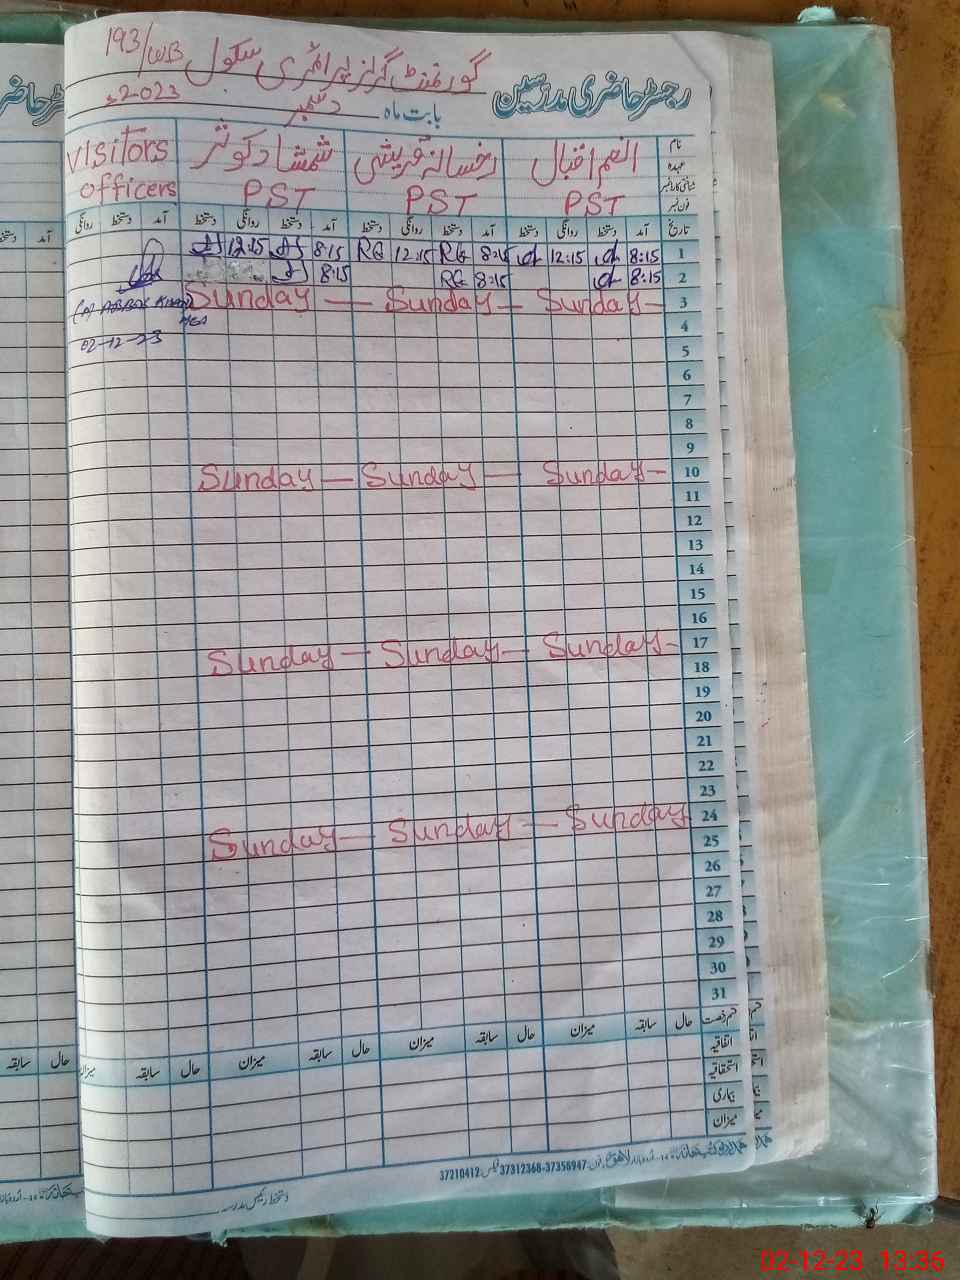 رجسٹر حاضری مدرسین گورنمنٹ گرلز پرائمری سکول 193/WB
بابت ماہ دسمبر 2023ء
نام انعم اقبال رخسانہ قریشی شمشاد کوثر Visitors
عہدہ PST PST PST officers
شناختی کارڈ نمبر
فون نمبر
تاریخ آمد دستخط روانگی دستخط آمد دستخط روانگی دستخط آمد دستخط روانگی دستخط آمد دستخط روانگی
1 8:15 12:15 8:15 RG 12:15 RG 8:15 12:15
2 8:15 8:15 RG 8:15
3 Sunday — Sunday — Sunday —
4
02-12-23
5
6
7
8
9
10 Sunday — Sunday — Sunday —
11
12
13
14
15
16
17 Sunday — Sunday — Sunday —
18
19
20
21
22
23
24 Sunday — Sunday — Sunday
25
26
27
28
29
30
31
قسم رخصت حال سابقہ میزان حال سابقہ میزان حال سابقہ میزان حال سابقہ میزان
اتفاقیہ
استحقاقیہ
بیماری
میزان
37312368-37356947 فیکس: 37210412
دستخط رئیس مدرسہ
حال سابقہ
02-12-23 13:36